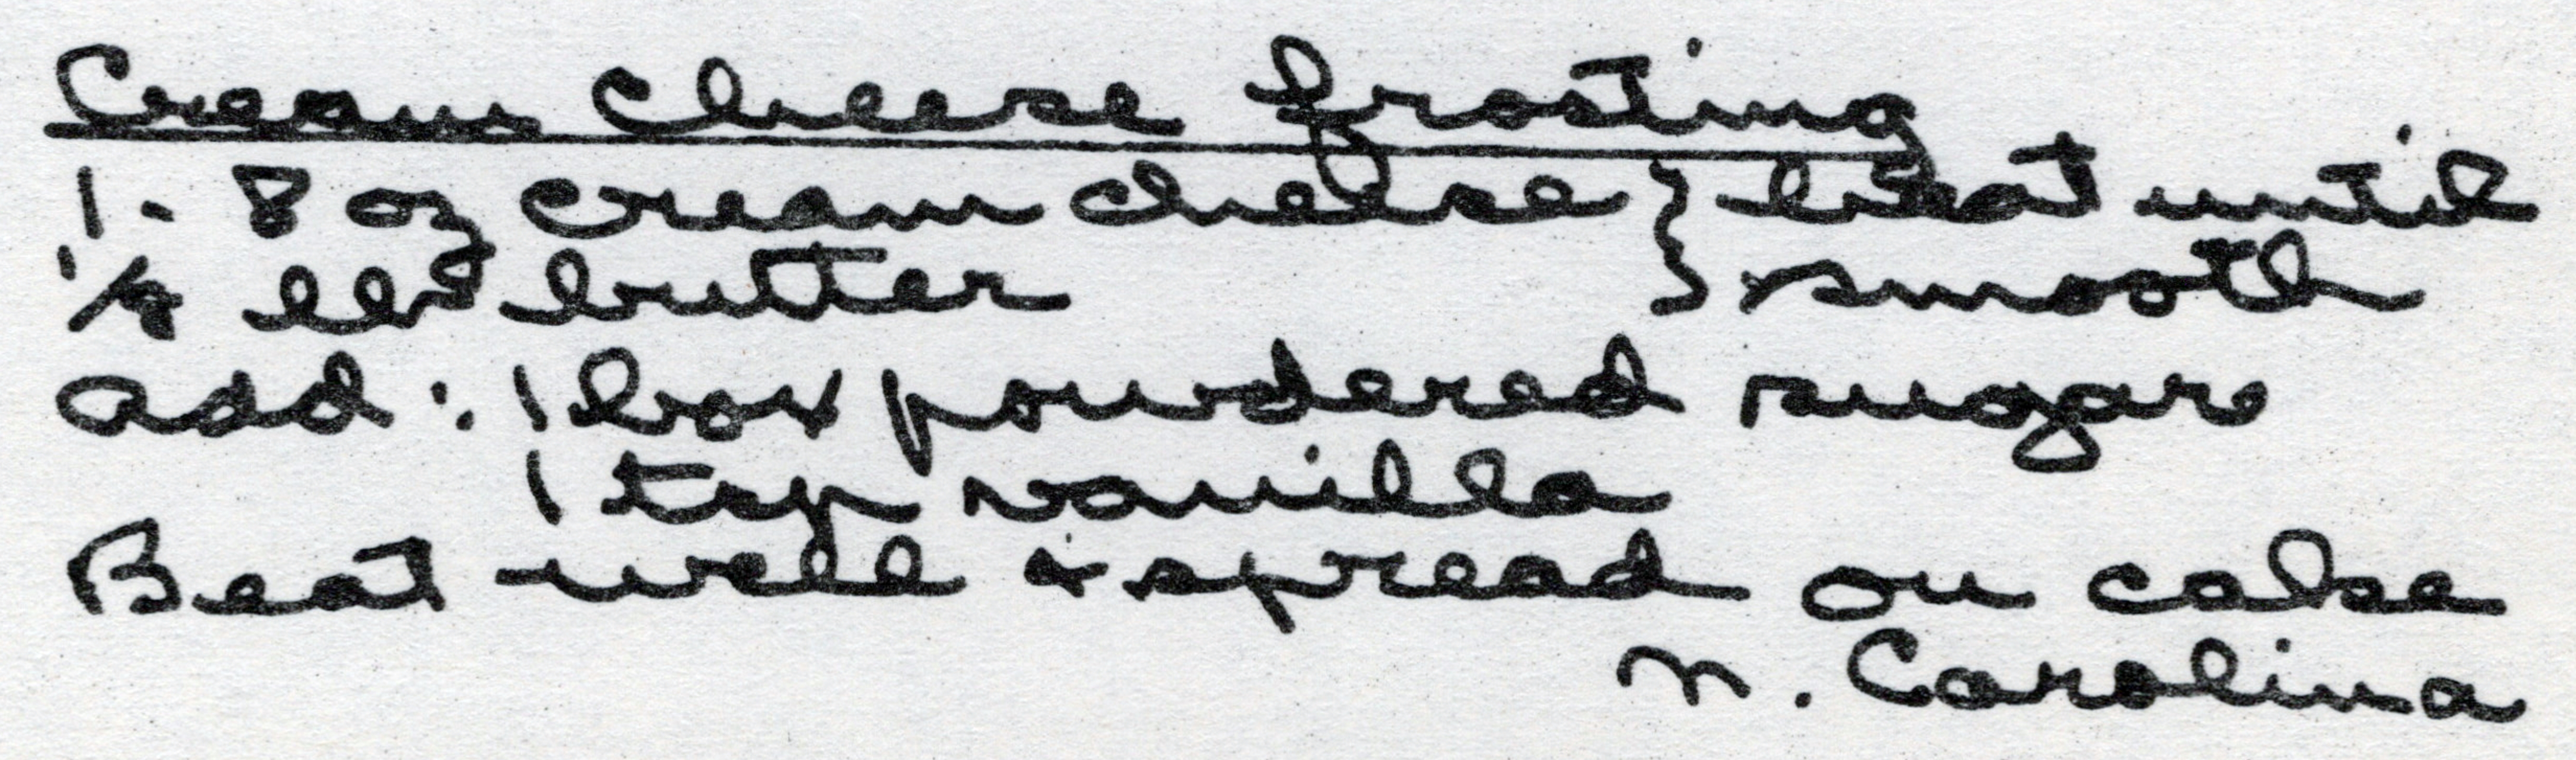 Cream Cheese frosting
1 - 8 oz cream cheese } beat until
1/4 lb butter } smooth
add: 1 box powdered sugar
1 tsp vanilla
Beat well & spread on cake
N. Carolina